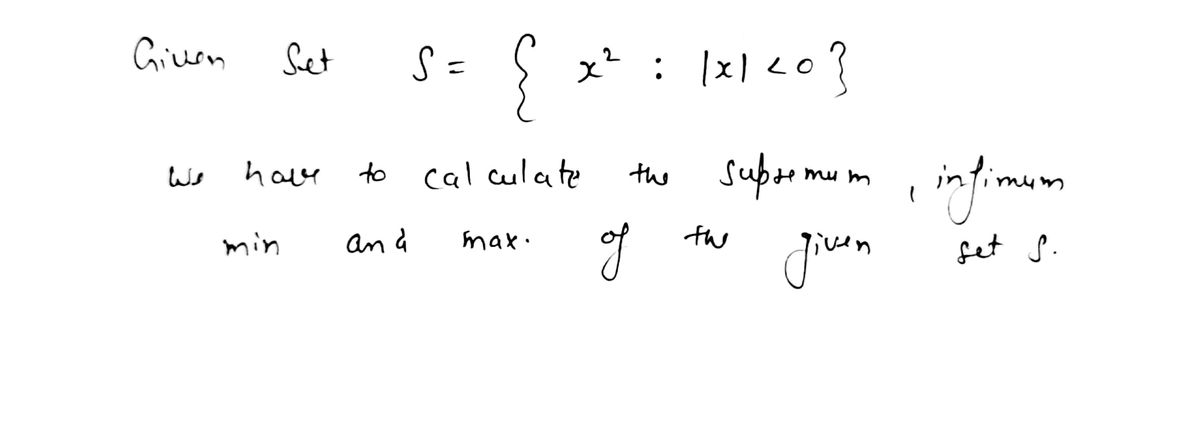 Given Set S = { x² : |x| < 0 }
We have to calculate the supremum, infimum
min and max. of the given set S.